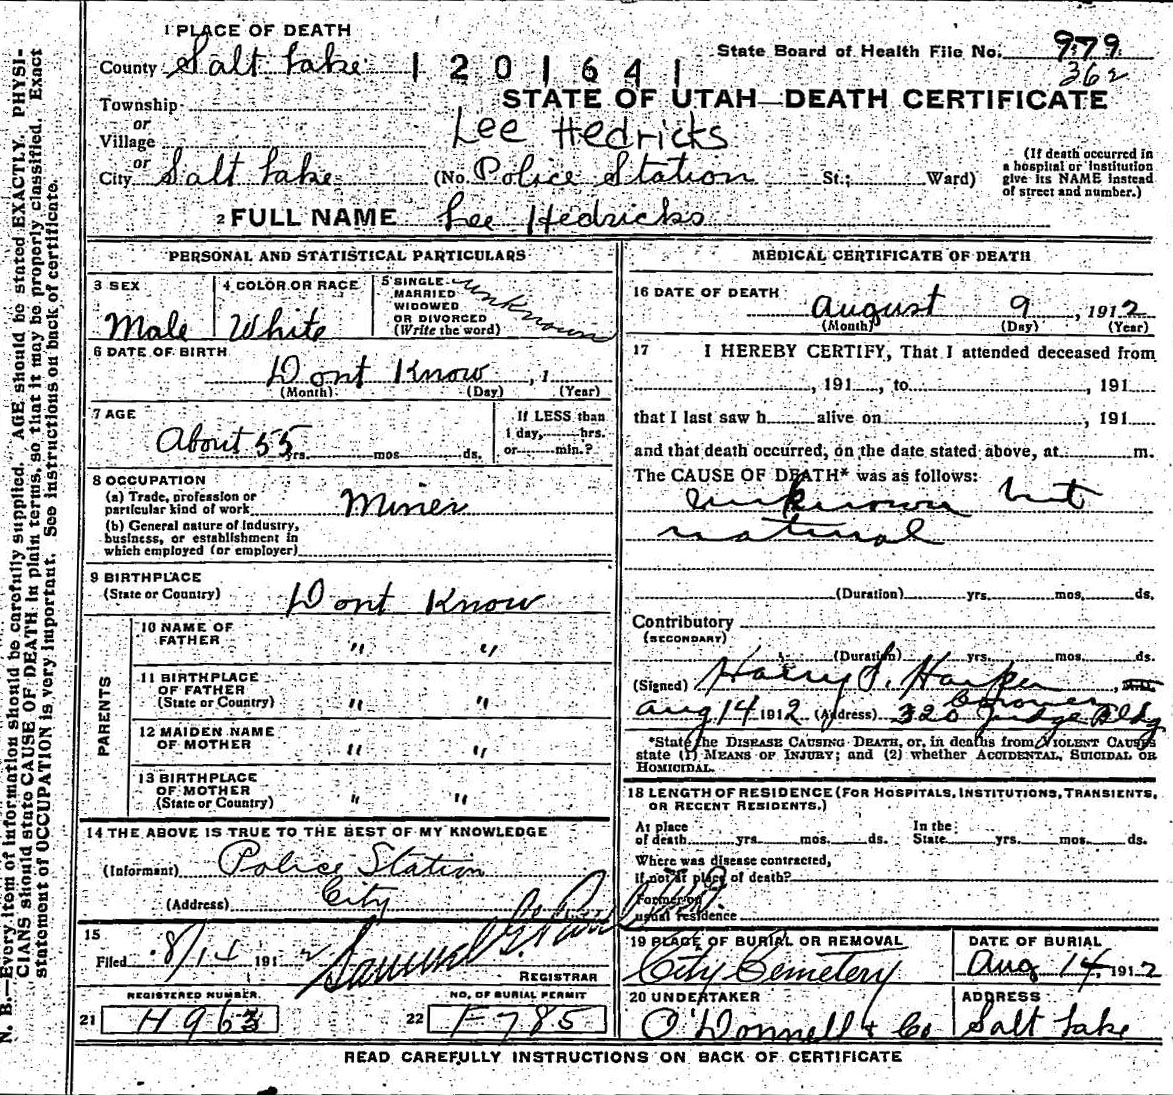 1 PLACE OF DEATH
State Board of Health File No. 979
County Salt Lake 1 2 0 1 6 4 1
362
STATE OF UTAH—DEATH CERTIFICATE
Township
or
Village
Lee Hedricks
or
City Salt Lake (No. Police Station St.; Ward)
(If death occurred in a hospital or institution give its NAME instead of street and number.)
2 FULL NAME Lee Hedricks
PERSONAL AND STATISTICAL PARTICULARS
3 SEX
Male
4 COLOR OR RACE
White
5 SINGLE
MARRIED
WIDOWED
OR DIVORCED
(Write the word)
unknown
6 DATE OF BIRTH
Dont Know , 1
(Month) (Day) (Year)
7 AGE
About 55 yrs. mos. ds.
If LESS than
1 day, hrs.
or min.?
8 OCCUPATION
(a) Trade, profession or
particular kind of work Miner
(b) General nature of industry,
business, or establishment in
which employed (or employer)
9 BIRTHPLACE
(State or Country) Dont Know
PARENTS
10 NAME OF
FATHER " "
11 BIRTHPLACE
OF FATHER
(State or Country) " "
12 MAIDEN NAME
OF MOTHER " "
13 BIRTHPLACE
OF MOTHER
(State or Country) " "
14 THE ABOVE IS TRUE TO THE BEST OF MY KNOWLEDGE
(Informant) Police Station
(Address) City
15
Filed 8/14 191 2 Samuel G.
REGISTRAR
REGISTERED NUMBER
21 H 963
NO. OF BURIAL PERMIT
22 F 785
MEDICAL CERTIFICATE OF DEATH
16 DATE OF DEATH
August 9 , 1912
(Month) (Day) (Year)
17 I HEREBY CERTIFY, That I attended deceased from
, 191 , to , 191
that I last saw h alive on , 191
and that death occurred, on the date stated above, at m.
The CAUSE OF DEATH* was as follows:
unknown but
natural
(Duration) yrs. mos. ds.
Contributory
(SECONDARY)
(Duration) yrs. mos. ds.
(Signed) Harry S. Harper ,
Coroner
Aug 14 1912 (Address) 320 Judge Bldg
*State the DISEASE CAUSING DEATH, or, in deaths from VIOLENT CAUSES
state (1) MEANS OF INJURY; and (2) whether ACCIDENTAL, SUICIDAL OR
HOMICIDAL.
18 LENGTH OF RESIDENCE (FOR HOSPITALS, INSTITUTIONS, TRANSIENTS,
OR RECENT RESIDENTS.)
At place
of death yrs. mos. ds.
In the
State yrs. mos. ds.
Where was disease contracted,
if not at place of death?
Former or
usual residence
19 PLACE OF BURIAL OR REMOVAL
City Cemetery
DATE OF BURIAL
Aug 14 1912
20 UNDERTAKER
O'Donnell & Co
ADDRESS
Salt Lake
READ CAREFULLY INSTRUCTIONS ON BACK OF CERTIFICATE
N. B.—Every item of information should be carefully supplied. AGE should be stated EXACTLY. PHYSI-
CIANS should state CAUSE OF DEATH in plain terms, so that it may be properly classified. Exact
statement of OCCUPATION is very important. See instructions on back of certificate.